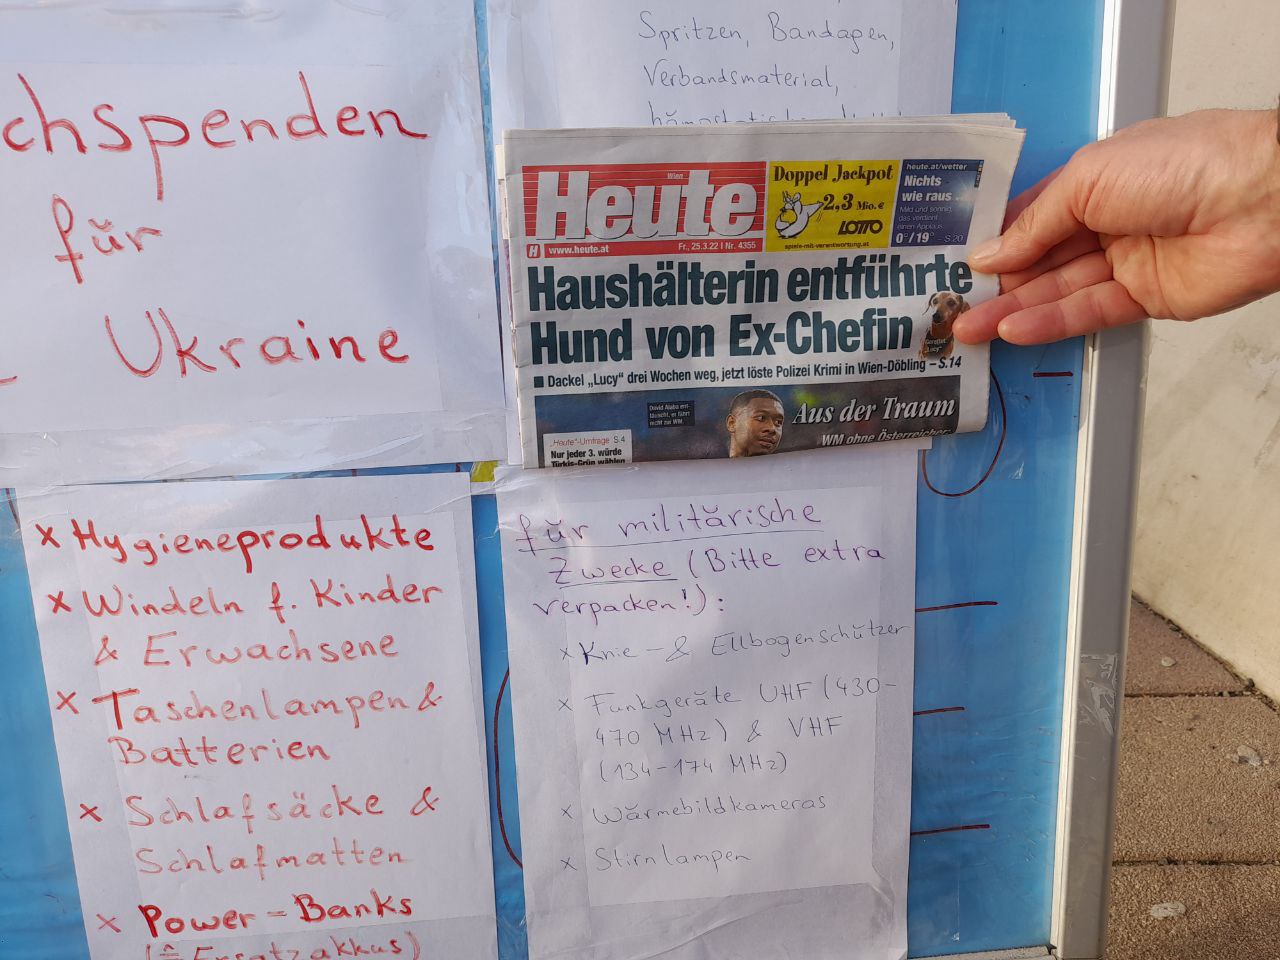 chspenden
für
Ukraine
Spritzen, Bandagen,
Verbandsmaterial,
Wien
Heute
www.heute.at
Fr., 25.3.22 | Nr. 4355
Doppel Jackpot
2,3 Mio. €
LOTTO
spiele-mit-verantwortung.at
heute.at/wetter
Nichts
wie raus
Mild und sonnig,
das verdient
einen Applaus
0°/19° – S. 20
Haushälterin entführte
Hund von Ex-Chefin
Gerettet:
„Lucy“
■ Dackel „Lucy“ drei Wochen weg, jetzt löste Polizei Krimi in Wien-Döbling – S.14
David Alaba ent-
täuscht, er fährt
nicht zur WM.
Aus der Traum
WM ohne Österreicher
„Heute“-Umfrage S.4
Nur jeder 3. würde
Türkis-Grün wählen
x Hygieneprodukte
x Windeln f. Kinder
& Erwachsene
x Taschenlampen &
Batterien
x Schlafsäcke &
Schlafmatten
x Power-Banks
(≙ Ersatzakkus)
für militärische
Zwecke (Bitte extra
verpacken!):
x Knie- & Ellbogenschützer
x Funkgeräte UHF (430-
470 MHz) & VHF
(134-174 MHz)
x Wärmebildkameras
x Stirnlampen